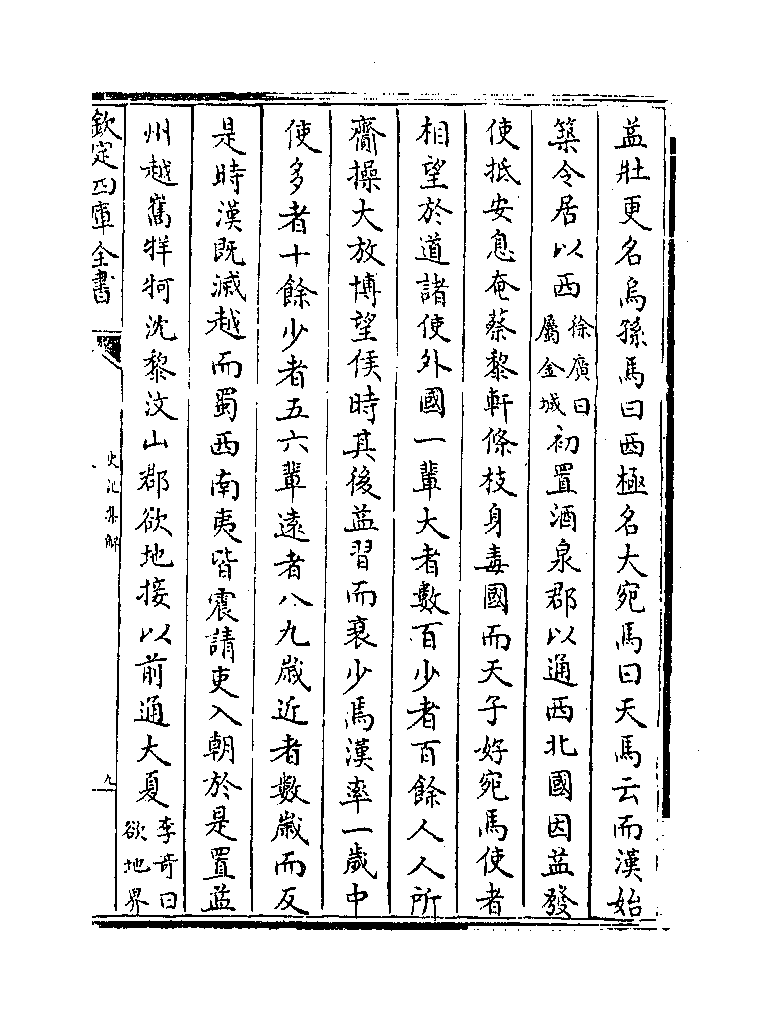 益壯更名烏孫馬曰西極名大宛馬曰天馬云而漢始
築令居以西徐廣曰屬金城初置酒泉郡以通西北國因益發
使抵安息奄蔡黎軒條枝身毒國而天子好宛馬使者
相望於道諸使外國一輩大者數百少者百餘人人所
齎操大放博望侯時其後益習而衰少焉漢率一歲中
使多者十餘少者五六輩遠者八九歲近者數歲而反
是時漢既滅越而蜀西南夷皆震請吏入朝於是置益
州越嶲牂牁沈黎汶山郡欲地接以前通大夏李奇曰欲地界
欽定四庫全書
史記集解
九